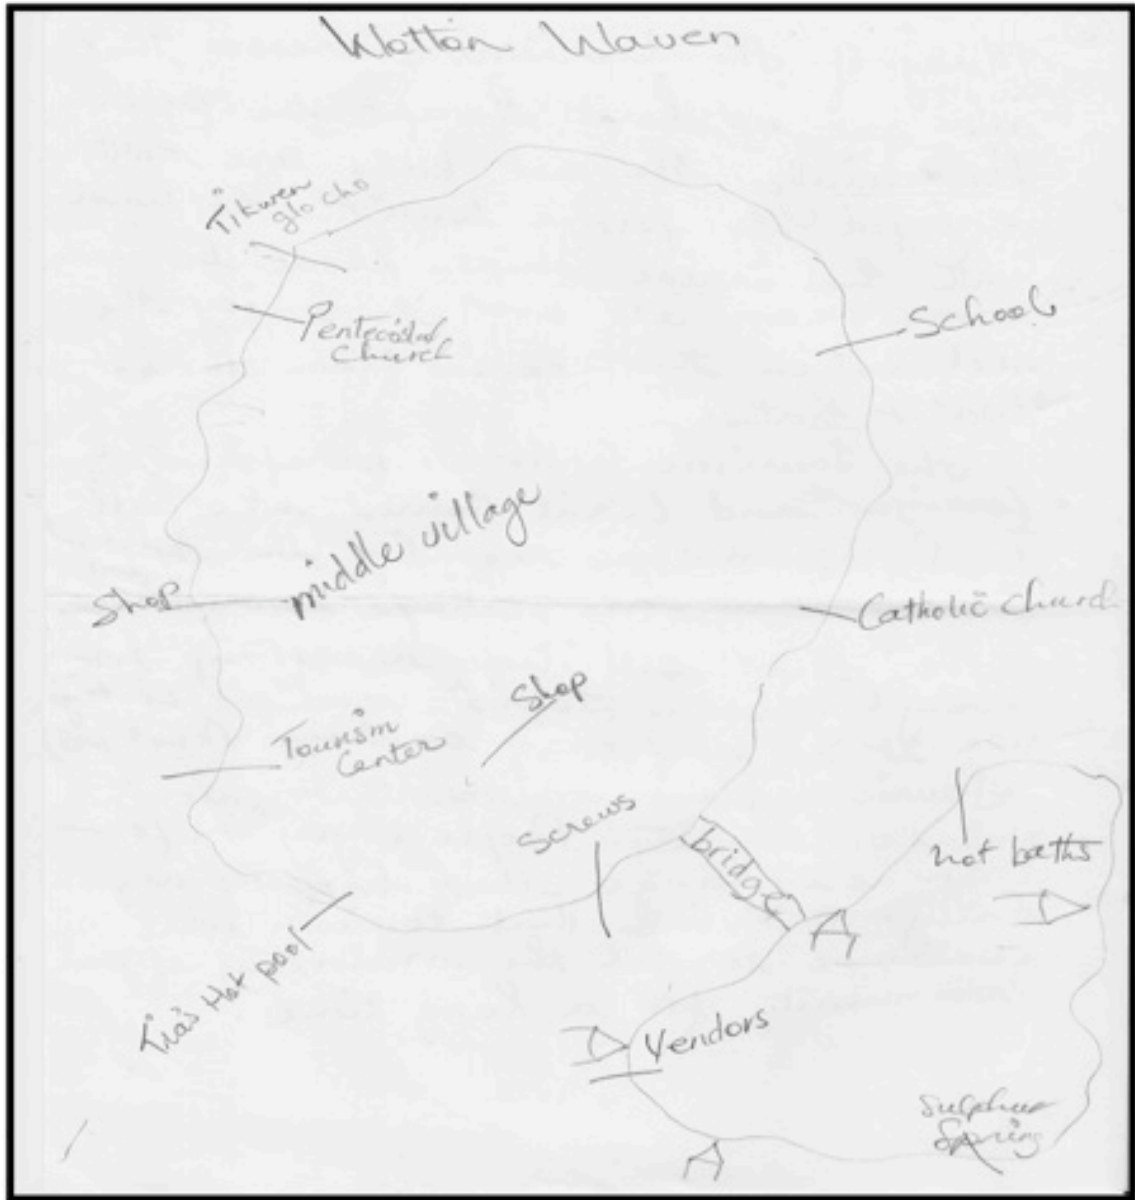 Wotton Waven
Tikwen
glo cho
Pentecostal
Church
School
middle village
Shop
Catholic Church
Shop
Tourism
Center
Screws
bridge
hot baths
Tia's Hot pool
Vendors
Sulphur
Spring